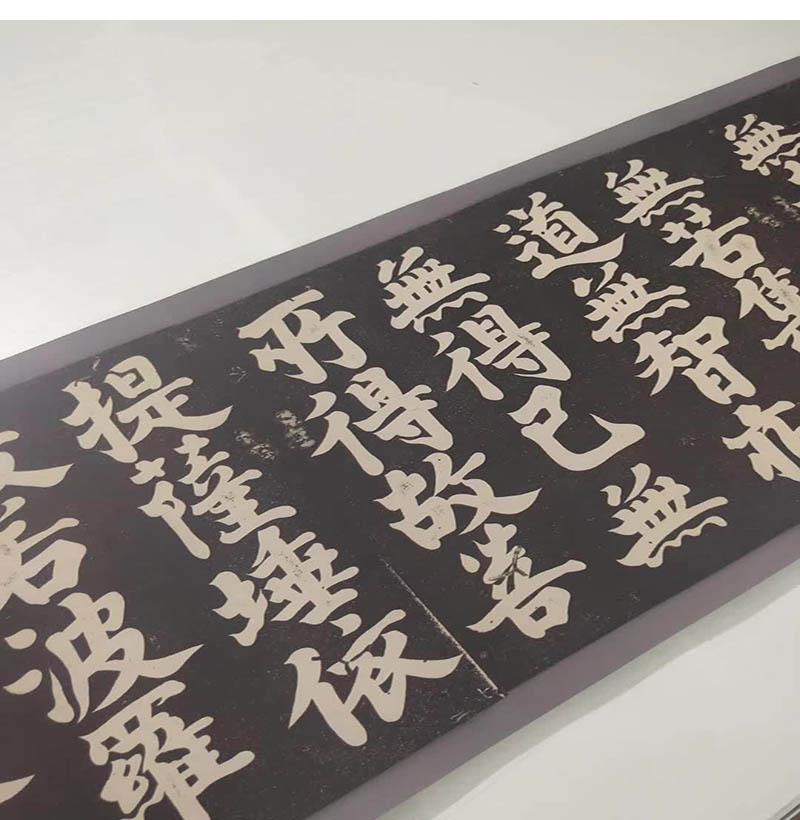 無
無苦集
道無智亦
無得已無
所得故菩
提薩埵依
若波羅